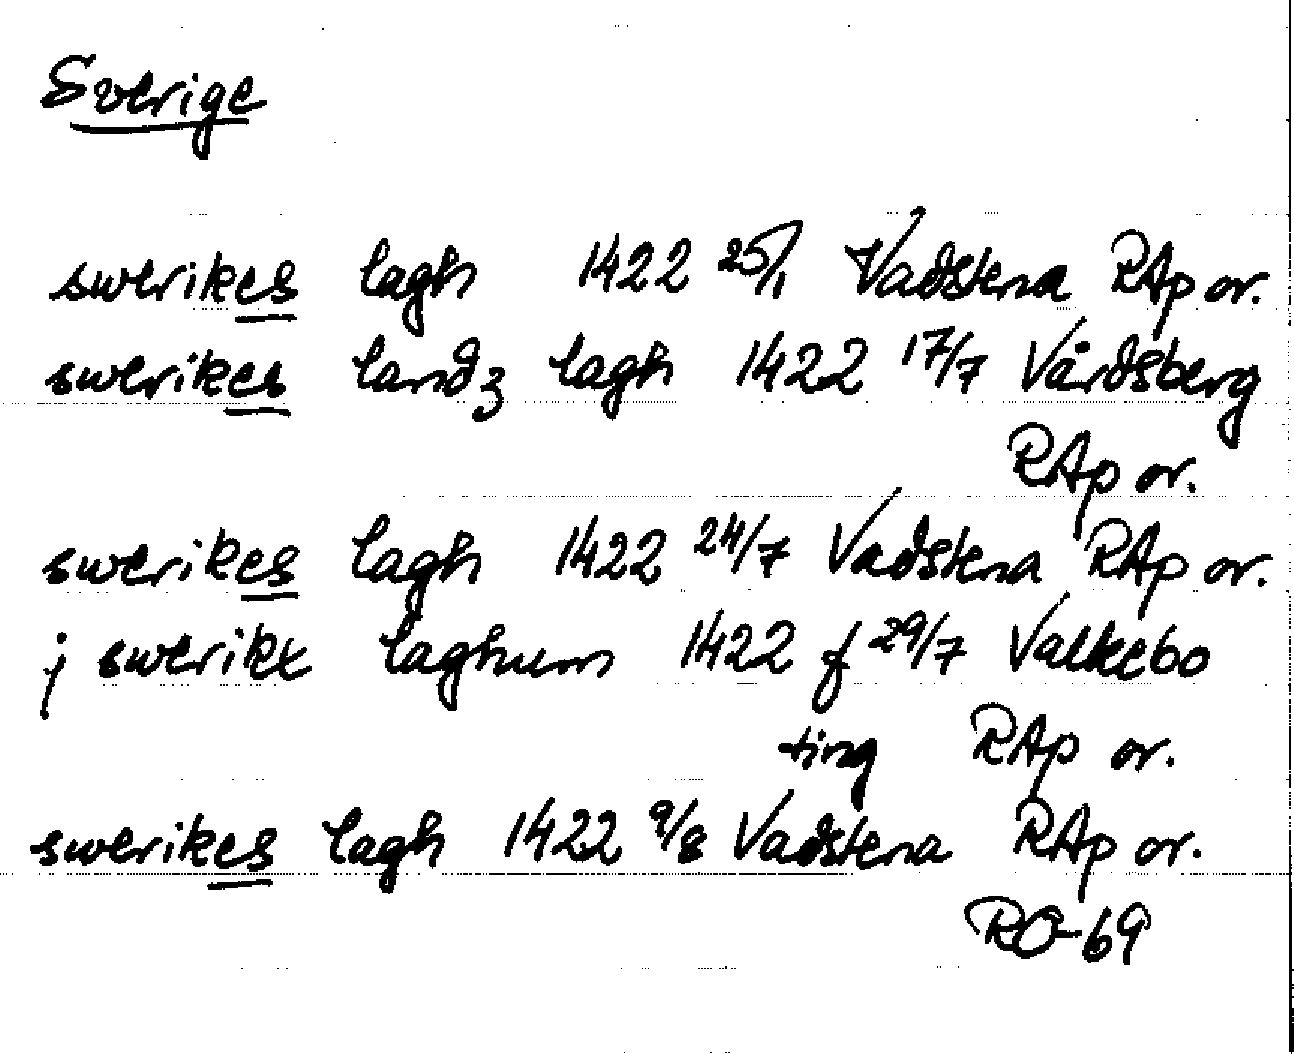 Sverige
swerikes lagh 1422 25/1 Vadstena RAp or.
swerikes landz lagh 1422 17/7 Vårdsberg
RAp or.
swerikes lagh 1422 24/7 Vadstena RAp or.
j swerikx laghum 1422 f 29/7 Valkebo
ting RAp or.
swerikes lagh 1422 9/8 Vadstena RAp or.
RO-69